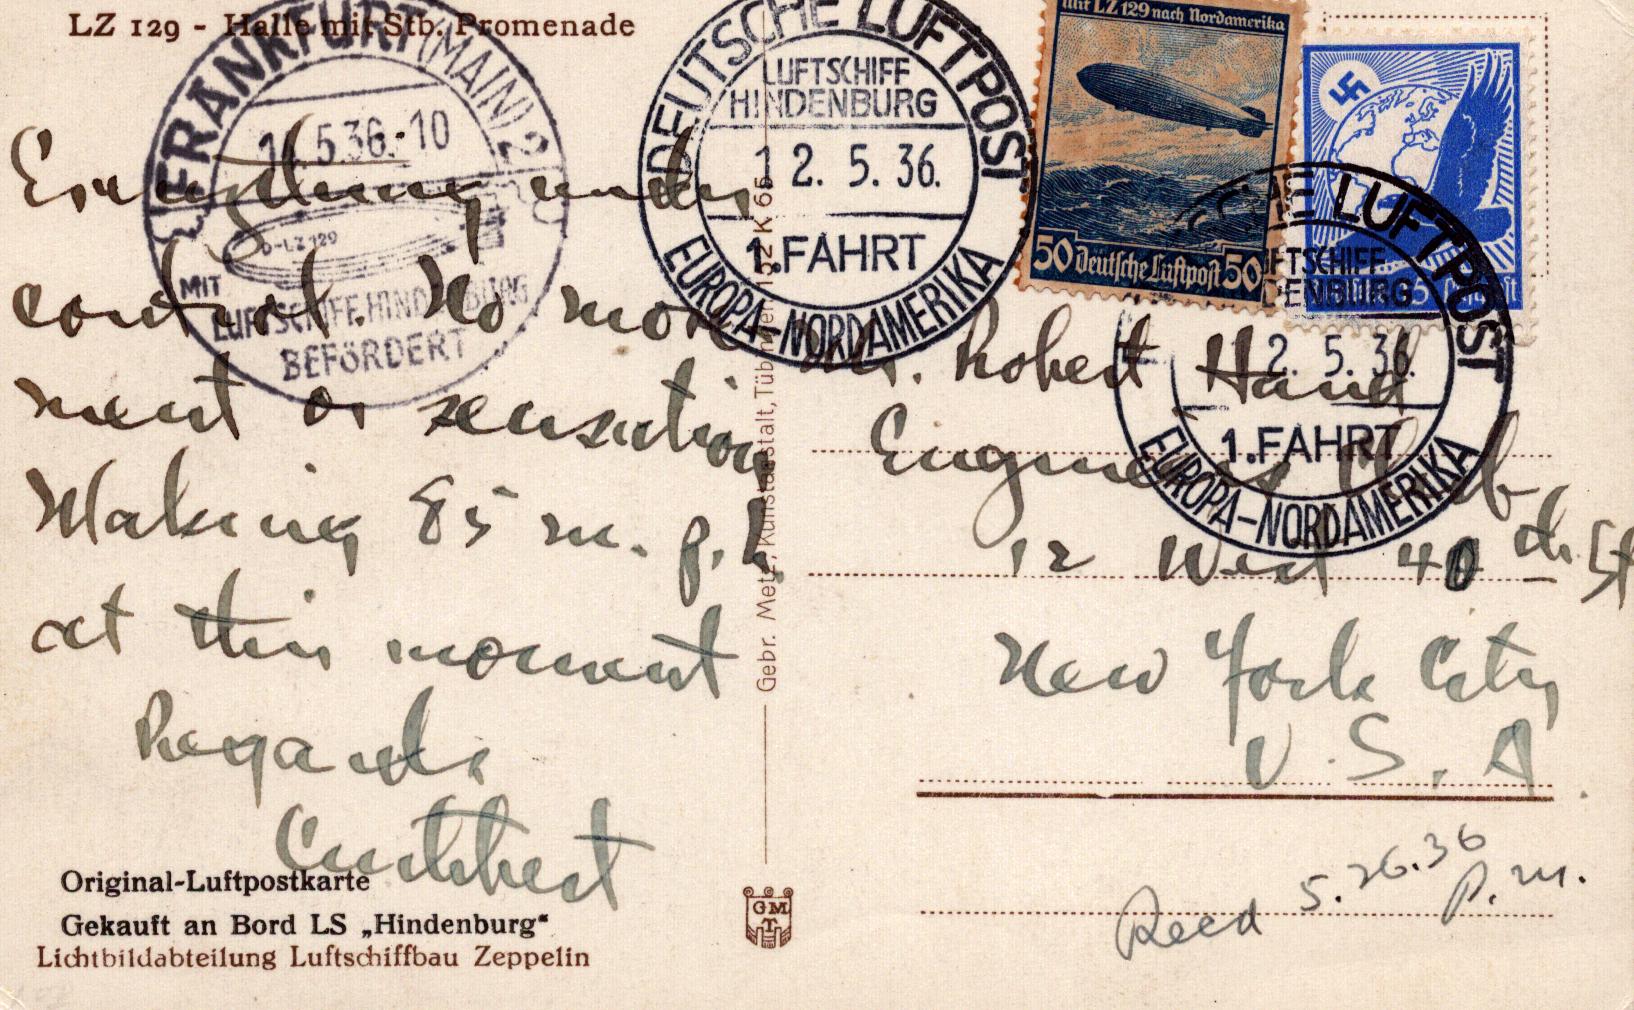 LZ 129 - Halle mit Stb. Promenade
FRANKFURT (MAIN) 2
5.36.-10
D-LZ 129
MIT
LUFTSCHIFF HINDENBURG
BEFÖRDERT
DEUTSCHE LUFTPOST
LUFTSCHIFF
HINDENBURG
12. 5. 36.
1.FAHRT
EUROPA-NORDAMERIKA
mit LZ 129 nach Nordamerika
50 Deutsche Luftpost 50
LUFTPOST
2. 5. 36.
1.FAHRT
EUROPA-NORDAMERIKA
Everything under
control. No move
ment or sensation
Making 85 m.p.h.
at this moment
Regards
Cuthbert
Gebr. Metz, Kunstanstalt, Tübingen
Mr. Robert Hand
Engineers Club
12 West 40 th. St
New York City
U.S.A
Recd 5.26.36
P.m.
Original-Luftpostkarte
Gekauft an Bord LS „Hindenburg"
Lichtbildabteilung Luftschiffbau Zeppelin
GMT